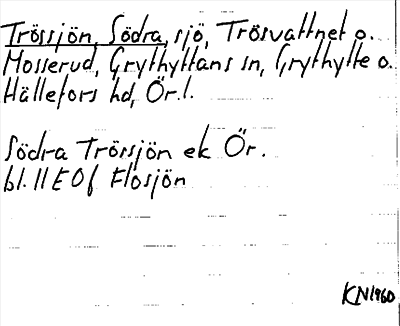 Trössjön, Södra, sjö, Trösvattnet o.
Mosserud, Grythyttans sn, Grythytte o.
Hällefors hd, Ör.l.
Södra Trörsjön ek Ör.
bl. 11 E 0f Flosjön
KN 1960